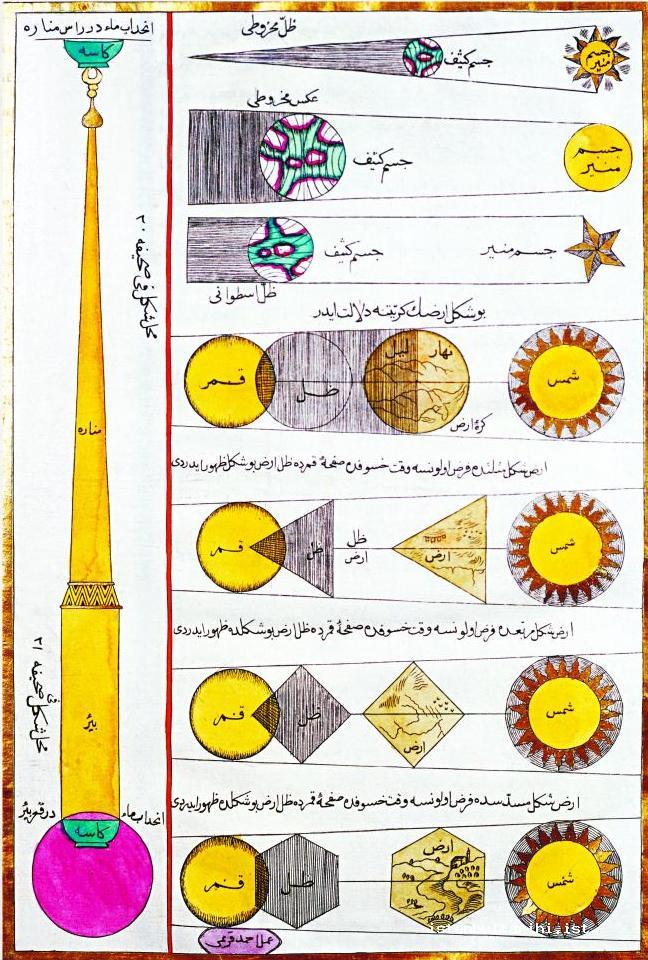 انحداب ماء در راس مناره
كاسه
مناره
محل شكل فى صحيفه ٢٠
بئر
محل شكل فى صحيفه ٢١
انحداب ماء
در قعر بئر
كاسه
ظلّ مخروطى
جسم كثيف
جسم منير
عكس مخروطى
جسم كثيف
جسم منير
جسم كثيف
جسم منير
ظلّ اسطوانى
بو شكل ارضك كريتنه دلالت ايدر
قمر
ظل
ليل
نهار
كرۀ ارض
شمس
ارض شكل مثلثده فرض اولونسه وقت خسوفده صفحۀ قمرده ظل ارض بو شكل ظهور ايدردى
قمر
ظل
ظل ارض
ارض
شمس
ارض شكل مربعده فرض اولونسه وقت خسوفده صفحۀ قمرده ظل ارض بو شكلده ظهور ايدردى
قمر
ظل
ارض
شمس
ارض شكل مسدسده فرض اولونسه وقت خسوفده صفحۀ قمرده ظل ارض بو شكلده ظهور ايدردى
قمر
ظل
ارض
شمس
احمد قريمى